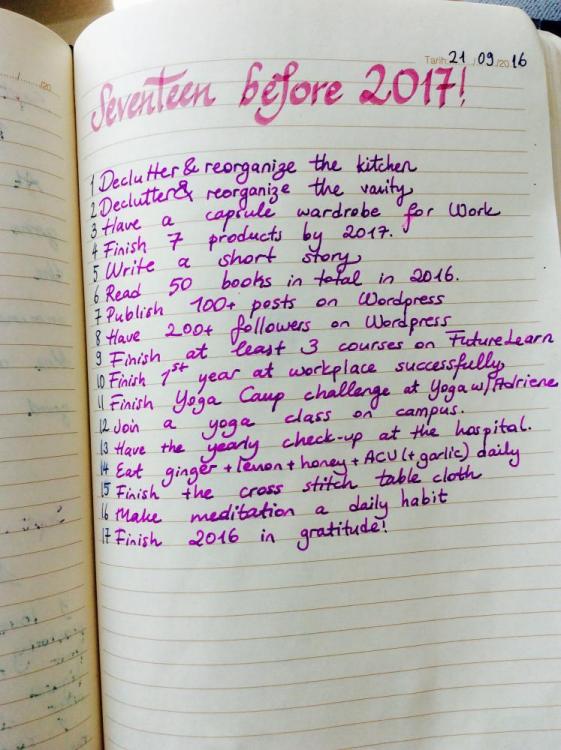 Tarih: 21 / 09 /20 16
Seventeen before 2017!
1 Declutter & reorganize the kitchen
2 Declutter & reorganize the vanity
3 Have a capsule wardrobe for Work
4 Finish 7 products by 2017.
5 Write a short story
6 Read 50 books in total in 2016.
7 Publish 100+ posts on Wordpress
8 Have 200+ followers on Wordpress
9 Finish at least 3 courses on FutureLearn
10 Finish 1st year at workplace successfully
11 Finish Yoga Camp challenge at Yoga w/ Adriene
12 Join a yoga class on campus.
13 Have the yearly check-up at the hospital.
14 Eat ginger + lemon + honey + ACV (+ garlic) daily
15 Finish the cross stitch table cloth
16 Make meditation a daily habit
17 Finish 2016 in gratitude!